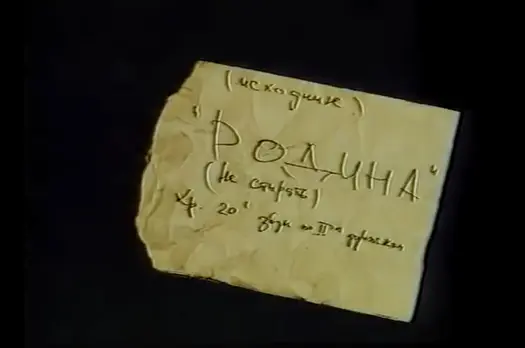 (исходник)
"РОДИНА"
(Не стирать)
Хр. 20' звук на II ой дорожке